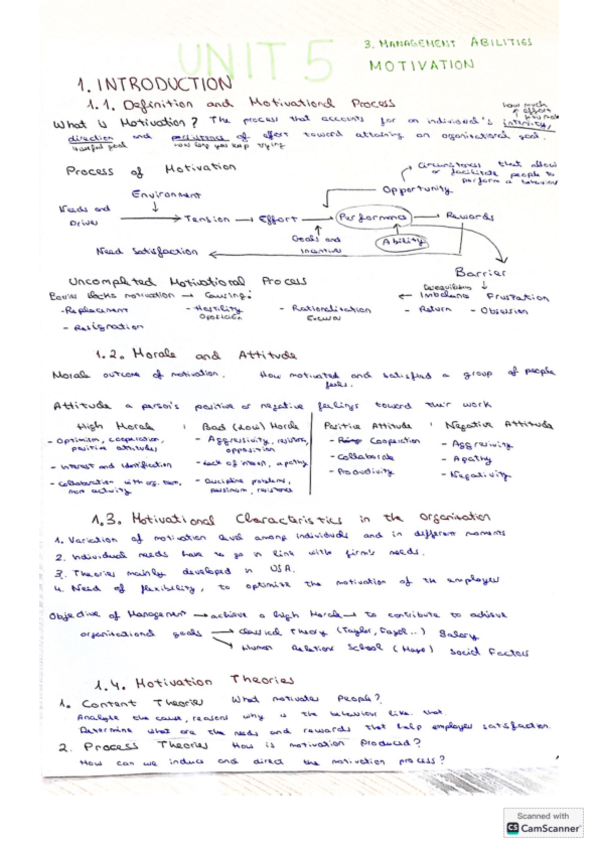 UNIT 5
3. MANAGEMENT ABILITIES
MOTIVATION
1. INTRODUCTION
1.1. Definition and Motivational Process
how much effort
What is Motivation? The process that accounts for an individual's intensity,
direction and persistence of effort toward attaining an organisational goal.
how long you keep trying
Process of Motivation
Circumstances that allow
or facilitate people to
perform a behaviour
Environment
Opportunity
Needs and
Drives
Tension → Effort → Performance → Rewards
Goals and
Incentives
Ability
Need Satisfaction
Barrier
Uncompleted Motivational Process
Barrier blocks motivation → Causing:
Disequilibrium
← Imbalance Frustration
- Replacement - Hostility - Rationalization - Return - Obsession
- Resignation
1.2. Morale and Attitude
Morale outcome of motivation. How motivated and satisfied a group of people
feels.
Attitude a person's positive or negative feelings toward their work
High Morale Bad (Low) Morale Positive Attitude Negative Attitude
- Optimism, cooperation, - Aggressivity, resistance, - Cooperation - Aggresivity
positive attitudes opposition - Collaborate - Apathy
- Interest and Identification - Lack of interest, apathy - Productivity - Negativity
- Collaboration with org. - Discipline problems,
pessimism, resistance
1.3. Motivational Characteristics in the Organisation
1. Variation of motivation level among individuals and in different moments
2. Individual needs have to go in link with firm's needs.
3. Theories mainly developed in USA.
4. Need of flexibility, to optimize the motivation of the employee
Objective of Management → achieve a high Morale → to contribute to achieve
organisational goals → Classical Theory (Taylor, Fayol...) Salary
Human Relations School (Mayo) Social Factors
1.4. Motivation Theories
1. Content Theories What motivates People?
Analyse the cause, reasons why is the behaviour like that.
Determine what are the needs and rewards that help employee satisfaction.
2. Process Theories How is motivation produced?
How can we induce and direct the motivation process?
Scanned with
CS CamScanner